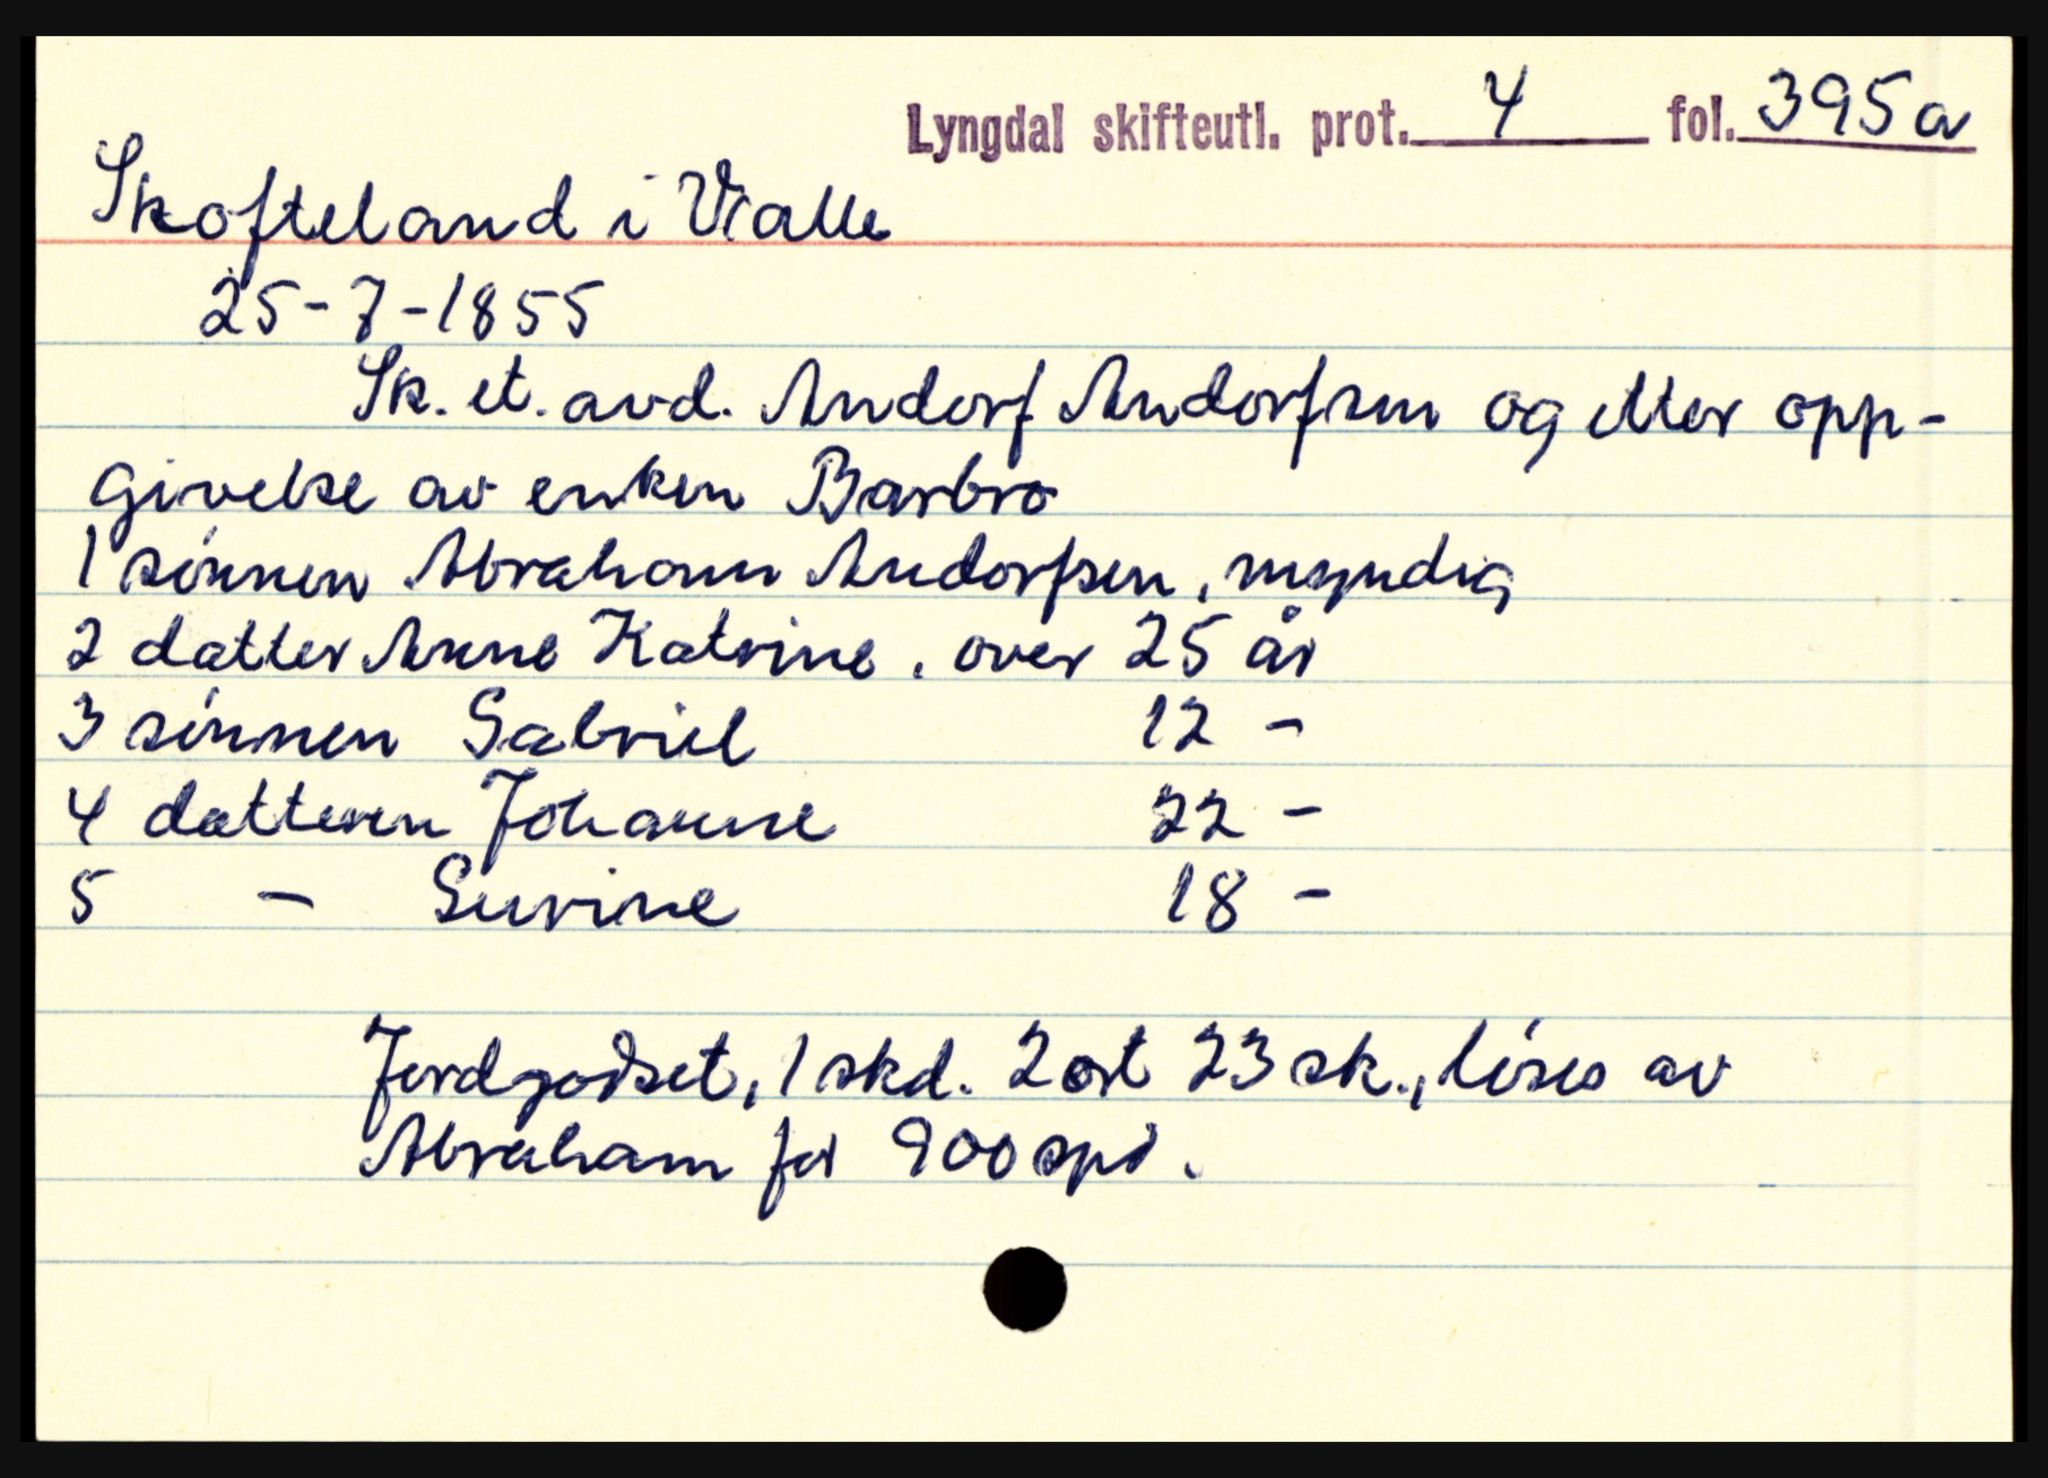 Lyngdal skifteutl. prot. 4 fol. 395a
Skofteland i Valle
25-7-1855
Sk. et. avd. Andorf Andorfsen og etter opp-
givelse av enken Barbro
1 sönnen Abraham Andorfsen, myndig
2 datter Anne Katrine, over 25 år
3 sönnen Gabriel 12 -
4 datteren Johanne 22 -
5 - Surine 18 -
Jordgodset, 1 skd. 2 ort 23 sk., löses av
Abraham for 900 spd.